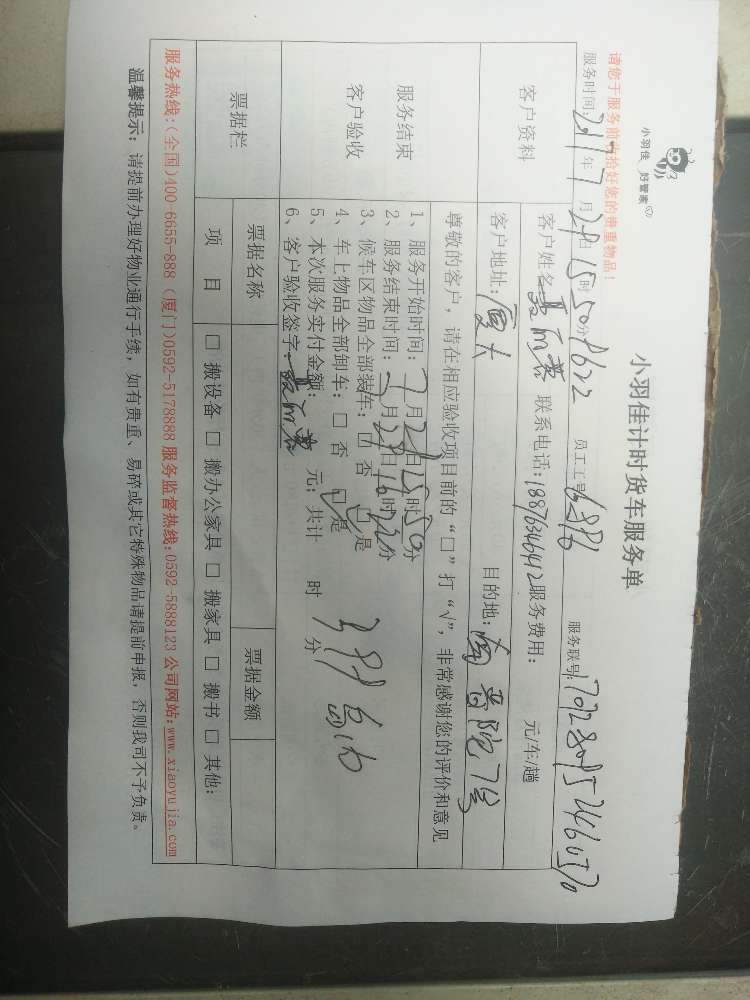 小羽佳 好管家
小羽佳计时货车服务单
请您于服务前为拾好您的贵重物品！
服务时间：2017年7月29日15时50分 员工工号 服务联号：
客户资料
客户姓名： 联系电话：18876346412 服务费用： 元/车/趟
客户地址：厦大 目的地：南普陀
尊敬的客户，请在相应验收项目前的“□”打“√”，非常感谢您的评价和意见
服务结束
客户验收
1、服务开始时间：7月29日15时50分
2、服务结束时间：7月29日16时22分
3、候车区物品全部装车：□ 否 □ 是
4、车上物品全部卸车：□ 否 □ 是
5、本次服务实付金额： 元；共计 时 分
6、客户验收签字：
票据栏
票据名称 票据金额
项 目 □ 搬设备 □ 搬办公家具 □ 搬家具 □ 搬书 □ 其他：
服务热线：(全国)400-6655-888 (厦门)0592-5178888 服务监督热线：0592-5888123 公司网站：www.xiaoyujia.com
温馨提示：请提前办理好物业通行手续，如有贵重、易碎或其它特殊物品请提前申报，否则我司不予负责。